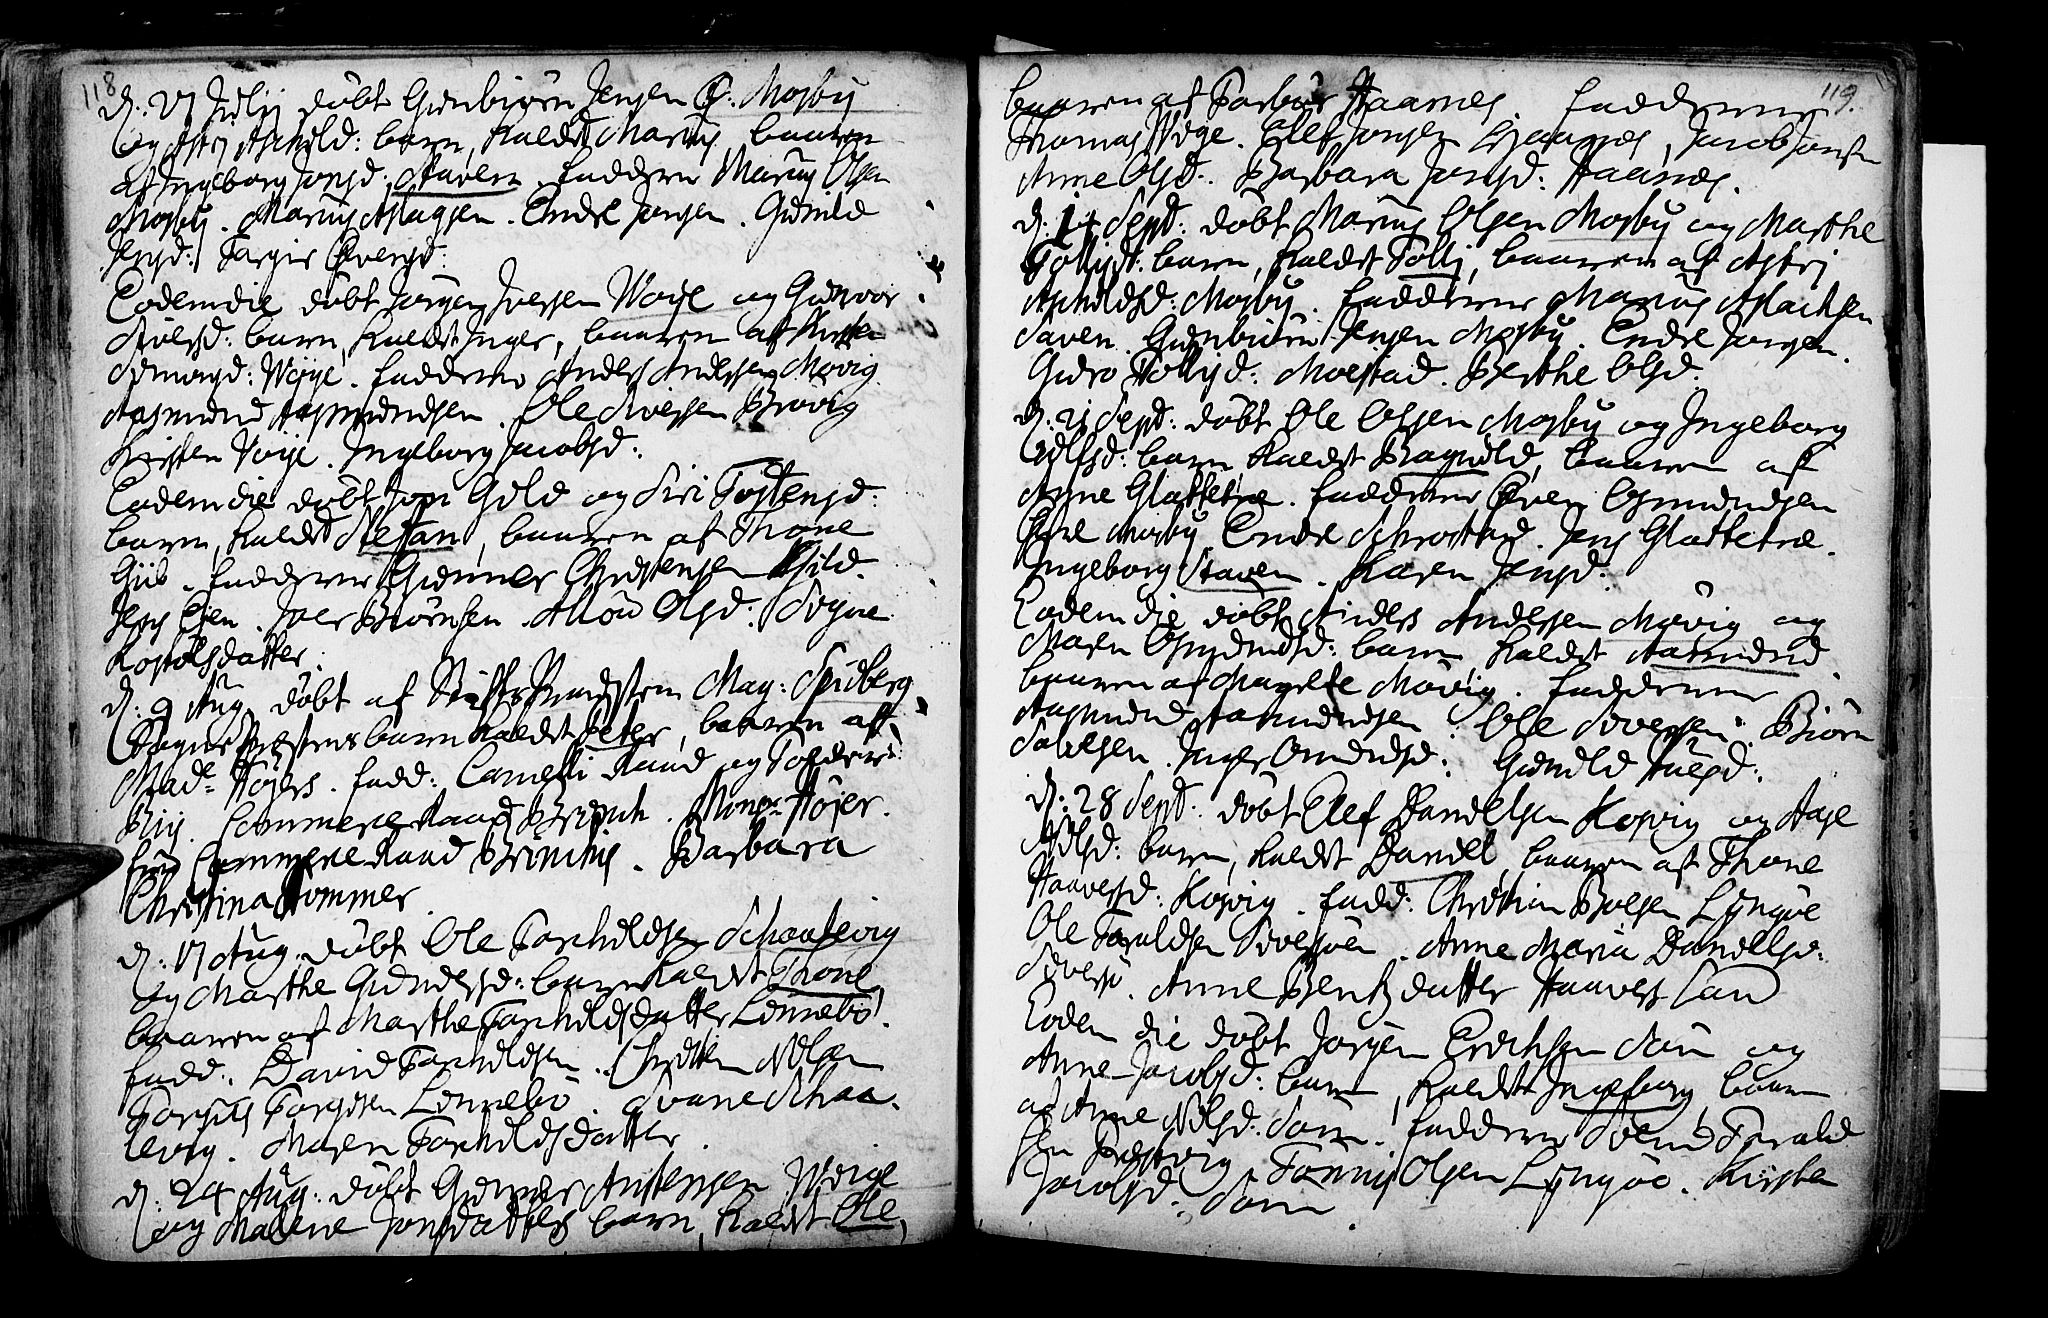 118
d: 17 Julij döbt Gunbiörn Jensen Ö: Mosby
og Astri Askild: barn, kaldet Marius, baaren
af Ingeborg Jensd: Staven. fadderne Marius Olsen
Mosby. Marius Aslagsen. Endre Jensen. Gunild
Jensd: Targier Evensd:
Eodem die döbt Jörgen Iversen Woije og Gunvor
Siversd: barn, kaldet Inger, baaren af Kirsten
Simonsd: Woije. fadderne Anders Andersen Møvig
Aasmund Aasmundsen. Ole Siversen Brøvig
Kirsten Voije. Ingeborg Jacobsd:
Eodem die döbt Jon Gild og Siri Tostensd:
barn, kaldet Steffan, baaren af Thone
Giis. fadderne Gunner Christensen Gild.
Jens Eien. Iver Biörnsen. Allou Olsd: Sogne
Kostölsdatter.
d: 9 Aug döbt af Stifts Provsten Mag: Spidberg
Sogne Præstens barn kaldet Peter, baaren af
Mad: Höjers. fadd: Cancelli Raad og Tolder
Bliy. Commerce Raad Brinch. Mons: Höjer.
fru Commerce Raad Brinchs. Barbara
Christina Hommer
d: 17 Aug. döbt Ole Torkildsen Schaalevig
og Marthe Gundersd: barn kaldet Thone
baaren af Marthe Torkildsdatter Lonnebo.
fadd. David Torkildsen. Christen Nilsen
Torgius Torgiusen Lonnebo. Sivane Schaa-
levig. Maren Torkildsdatter.
d: 24 Aug: döbt Gunner Antensen Woije
og Malene Jonsdatters barn, kaldet Ole,
119.
baaren af Torbor Haanes. fadderne
Thomas Woge. Elef Jensen Haanes, Jacob Jonsen
Anne Olsd: Barbara Jonsd: Haanes.
d: 14 Sept: döbt Marius Olsen Mosby og Marthe
Tollisd: barn, kaldet Tolli, baaren af Astri
Askildsd: Mosby. fadderne Marius Aslachsen
Staven. Gunbiörn Jensen Mosby. Endre Jensen.
Guro Tollisd: Moestad. Berthe Olsd.
d: 21 Sept: döbt Ole Olsen Mosby og Ingeborg
Udlfsd: barn, kaldet Ragnild, baaren af
Anne Glattetræ. fadderne Even Osmundsen
Mosby Endre Schrosted. Jens Glattetræ.
Ingeborg Staven. Karen Jensd:
Eodem die döbt Anders Andersen Møvig og
Maren Osmundsd: barn kaldet Aasmund.
baaren af Magrete Møvig. fadderne
Aasmund Aasmundsen. Ole Siversen. Biörn
Salvesen. Inger Omundsd: Gunild Aulsd:
d: 28 Sept: döbt Elef Danielsen Kosvig og Aase
Adlsd: barn, kaldet Daniel, baaren af Thone
Haaversd: Kosvig. fadd: Christian Boesen Lyngöe
Ole Taraldsen Siversöen. Anne Maria Danielsd:
Siversö. Anne Bentsdatter Haavers Land
Eodem die döbt Jörgen Erichsen Som og
Anne Jacobsd: barn, kaldet Ingeborg, baaren
af Anne Nilsd: Som. fadderne Svend Tarald
sen Præstvig. Tönnis Olsen Lyngöe. Kirsten
Jacobsd: Som.